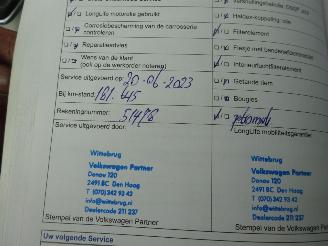 LongLife motorolie gebruikt
Corrosiebescherming van de carrosserie
controleren
Reparatieadvies
Wens van de klant
(ook op de werkorder noteren)
Filterelement
Interieurluchtfilterelement
Getande riem
Bougies
LongLife mobiliteitsgarantie
Service uitgevoerd op: 20-06-2023
Bij km-stand: 161.645
Rekeningnummer: 51478
Service uitgevoerd door:
Wittebrug
Volkswagen Partner
Donau 120
2491 BC Den Haag
T (070) 342 93 42
info@wittebrug.nl
Dealercode 211 237
Stempel van de Volkswagen Partner
Wittebrug
Volkswagen Partner
Donau 120
2491 BC Den Haag
T (070) 342 93 42
info@wittebrug.nl
Dealercode 211 237
Stempel van de Volkswagen Partner
Uw volgende Service